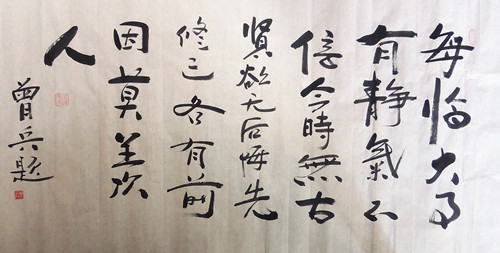 每临大事
有静氣不
信今時無古
賢欲无后悔先
修己各有前
因莫羡
人
曾兵题